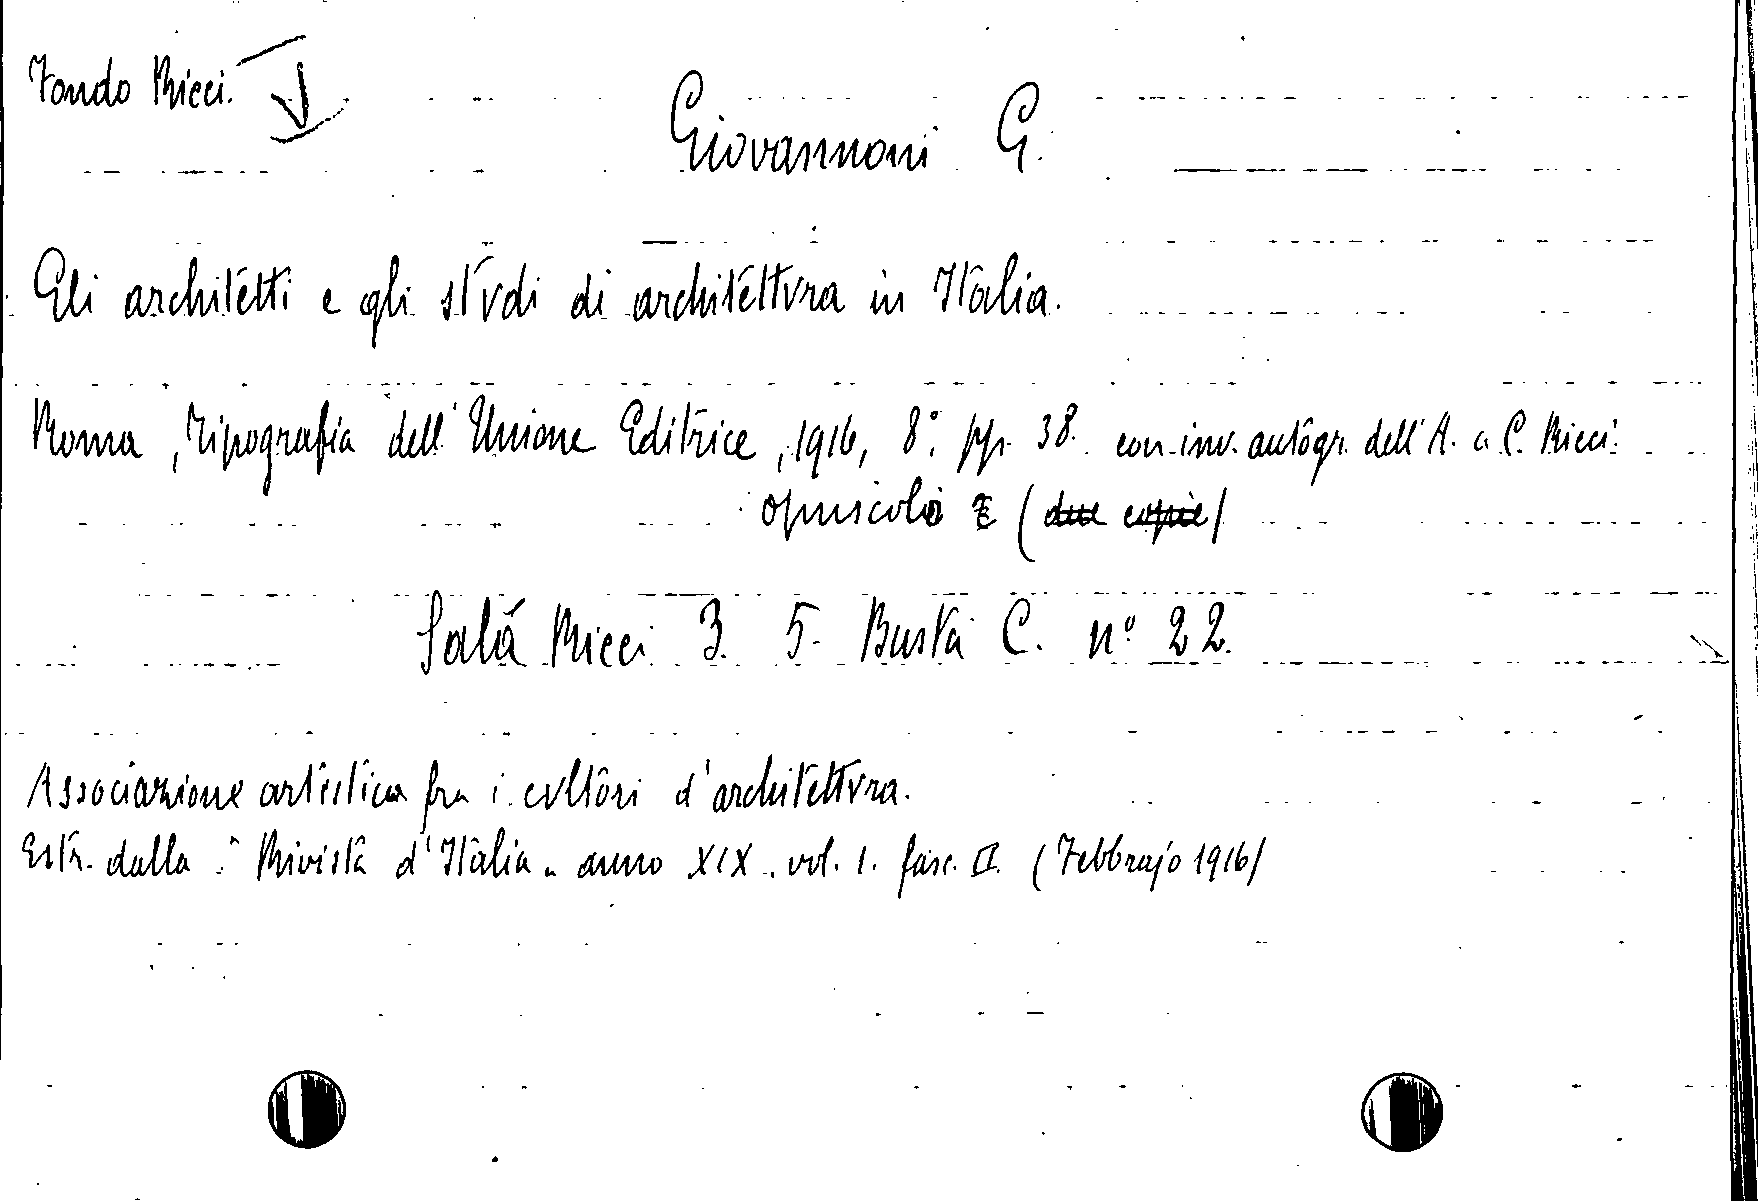 Fondo Ricci.
Giovannoni G.
Gli architetti e gli studi di architettura in Italia.
Roma, Tipografia dell'Unione Editrice, 1916, 8°. pp. 38. con inv. autogr. dell'A. a C. Ricci.
opuscolo (due copie)
Sala Ricci 3. 5. Busta C. n° 22.
Associazione artistica fra i cultori d'architettura.
Estr. dalla "Rivista d'Italia" anno XIX. vol. I. fasc. II. (Febbrajo 1916)